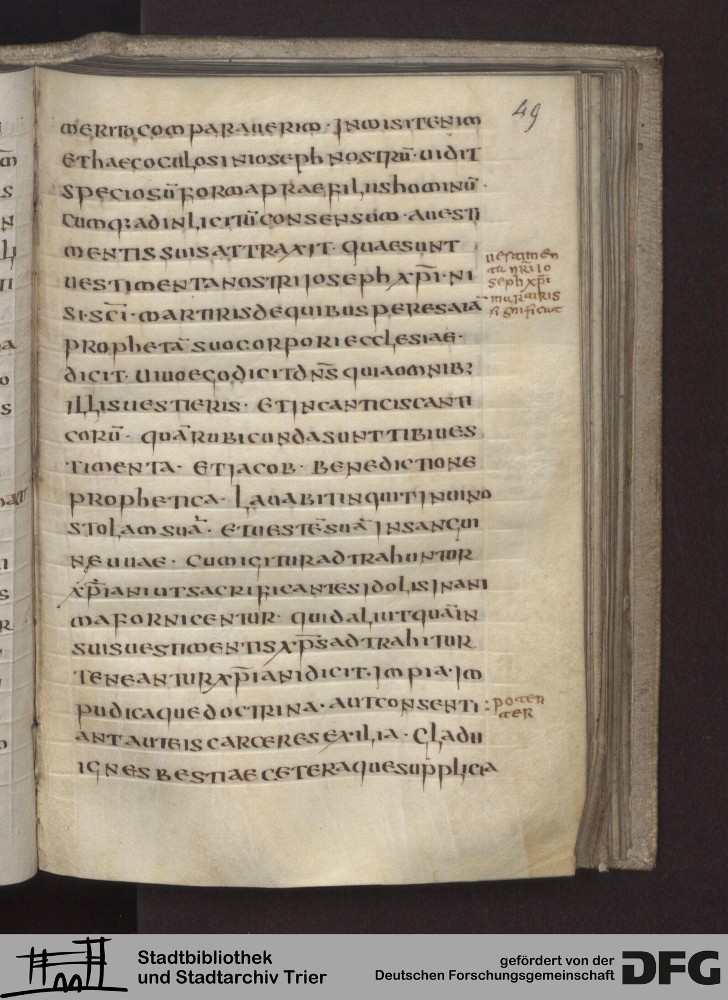 49
merito comparauerim · Inmisit enim
et haec oculos in ioseph nostrū · uidit
speciosū forma prae filiis hominū ·
cumq: ad inlicitū consensum · auesti
mentis suis attraxit · quae sunt
uestimenta nostri ioseph xp̄i · ni
si · sc̄i · martiris de quibus per esaiā
prophetā suo corpori ecclesiae ·
dicit · uiuo ego dicit dn̄s quia omnib:
illis uestieris · et in canticis canti
corū · quā rubicunda sunt tibi ues
timenta · et iacob · benedictione
prophetica · lauabit inquit in uino
stolam suā · et uestē suā in sangui
ne uuae · cum igitur adtrahuntur
xp̄iani ut sacrificantes idolis in ani
ma fornicentur · quid aliut quā in
suis uestimentis xp̄s adtrahitur
teneantur xp̄iani dicit · impia · im
pudica que doctrina · aut consenti
ant aut eis carceres exilia · gladii
ignes bestiae cetera que supplicia
uestimen
ta nr̄i io
seph xp̄i
martiris
significat
: poten
ter
Stadtbibliothek
und Stadtarchiv Trier
gefördert von der
Deutschen Forschungsgemeinschaft
DFG